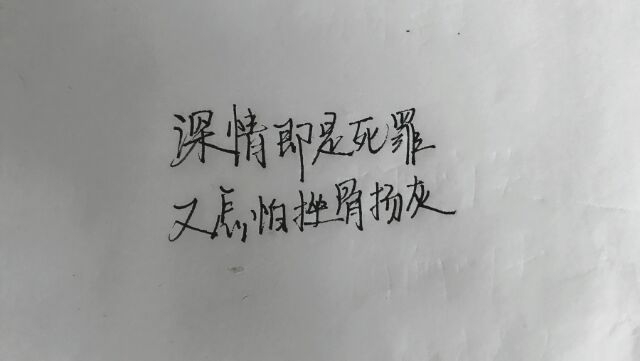 深情即是死罪
又怎怕挫骨扬灰